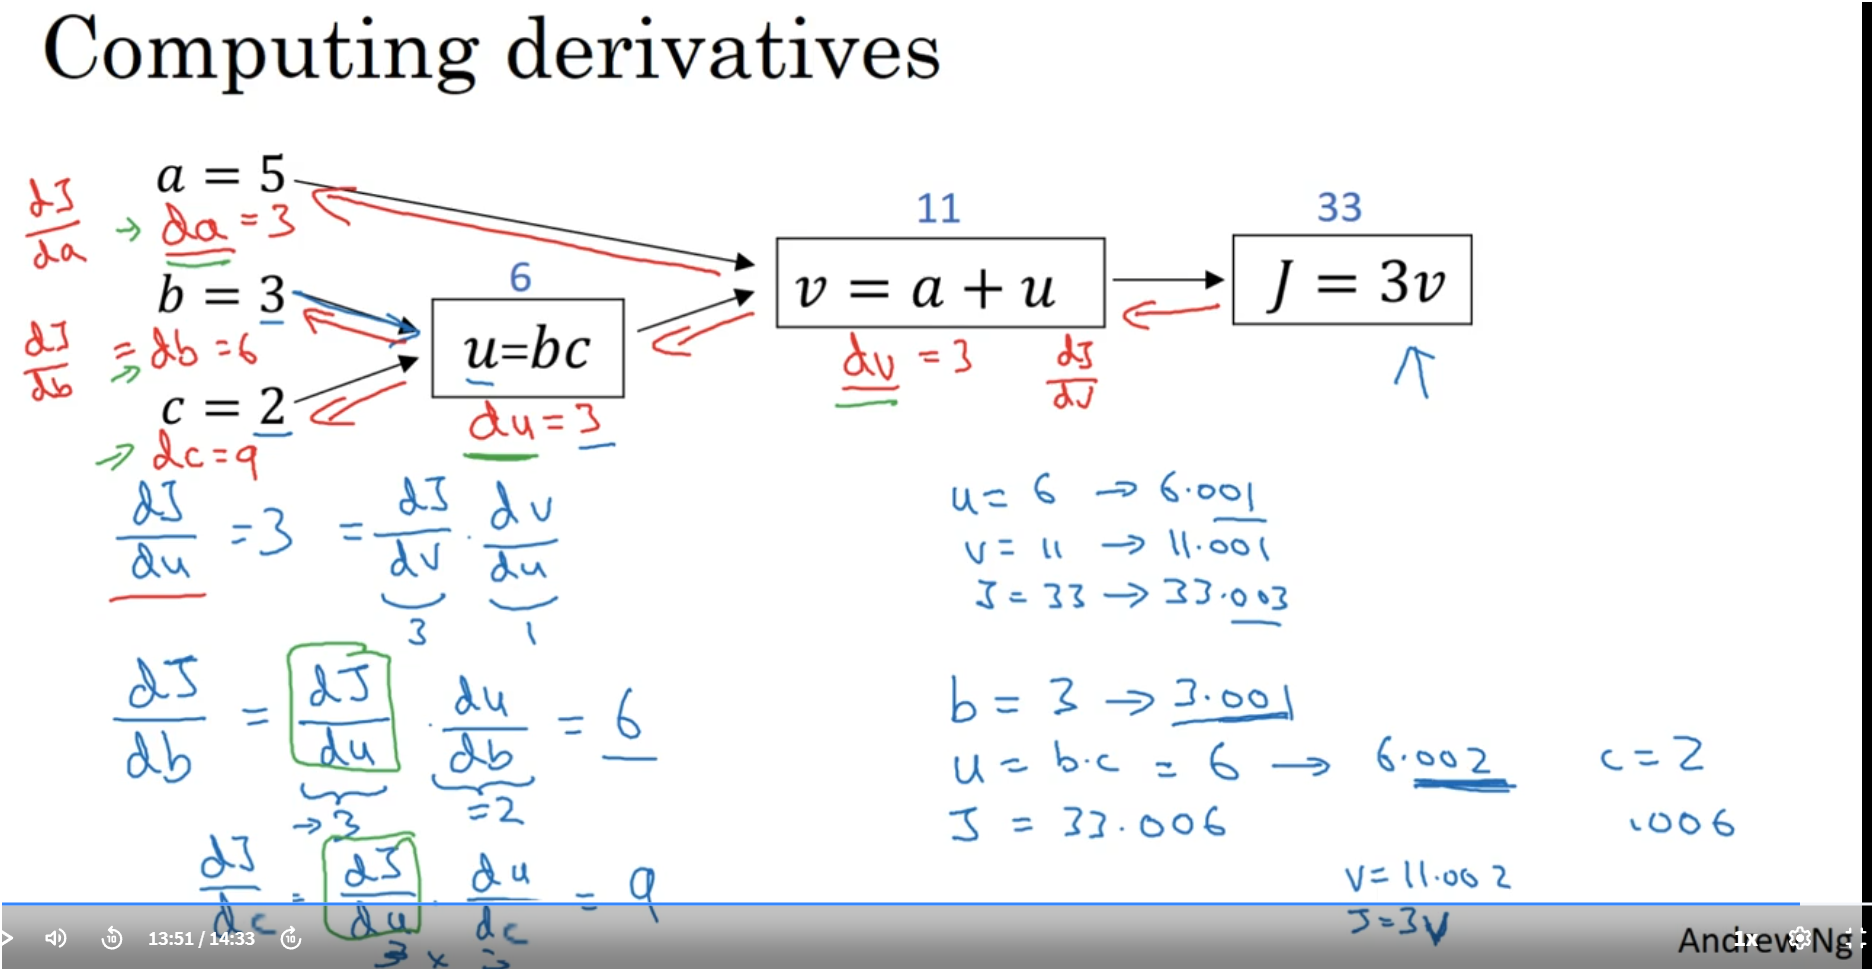 Computing derivatives
a = 5
dJ/da → da = 3
b = 3
dJ/db = db = 6
c = 2
→ dc = 9
6
u=bc
du = 3
11
v = a + u
dv = 3 dJ/dv
33
J = 3v
dJ/du = 3 = dJ/dv · dv/du
3 1
dJ/db = dJ/du · du/db = 6
→ 3 = 2
dJ/dc = dJ/du · du/dc = 9
3 ×
u = 6 → 6.001
v = 11 → 11.001
J = 33 → 33.003
b = 3 → 3.001
u = b·c = 6 → 6.002 c = 2
J = 33.006 .006
v = 11.002
J = 3v
13:51 / 14:33
10
10
1x
Andrew Ng